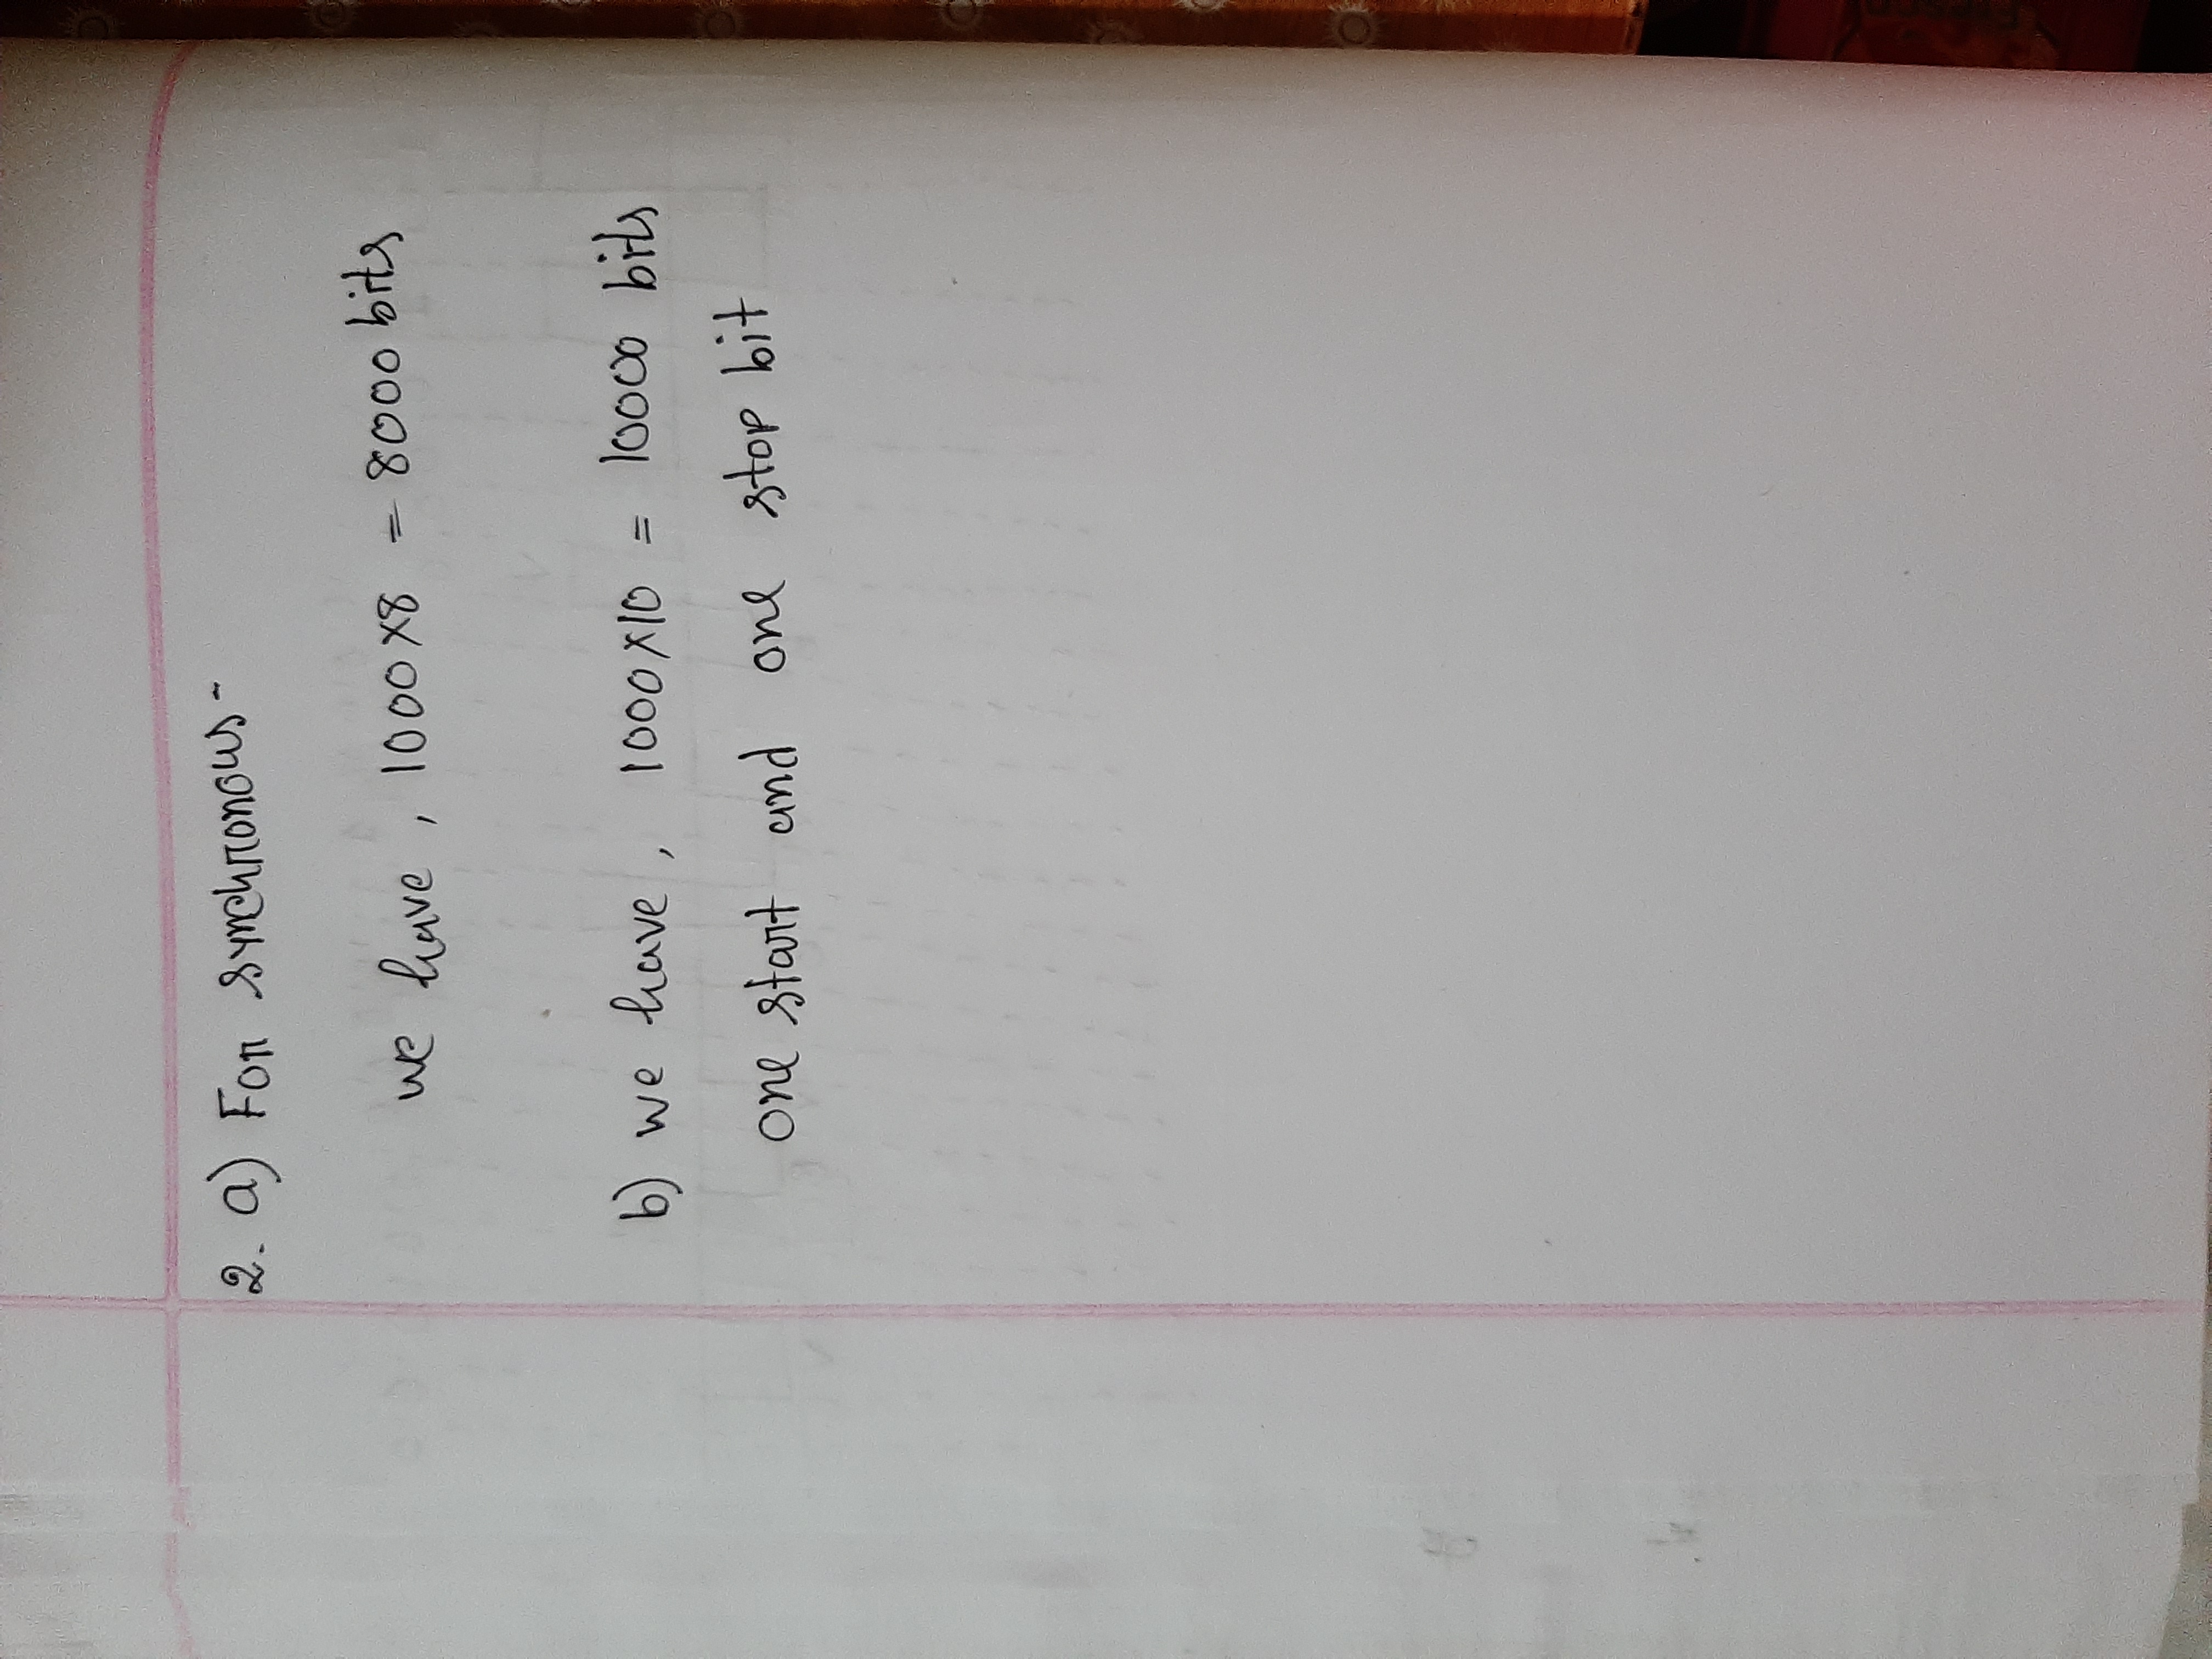 2. a) For synchronous -
we have, 1000×8 = 8000 bits
b) we have, 1000×10 = 10000 bits
one start and one stop bit